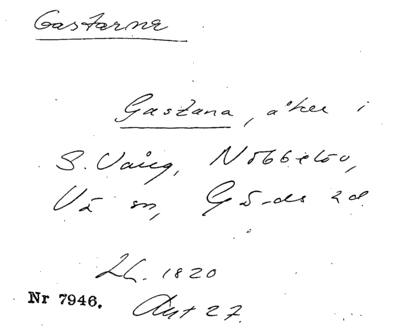 Gastarne
Gastana, åker i
S. Vång, Nöbbelöv,
Vä sn, Gärds hd.
Lh. 1820
Nr 7946. Akt 27.